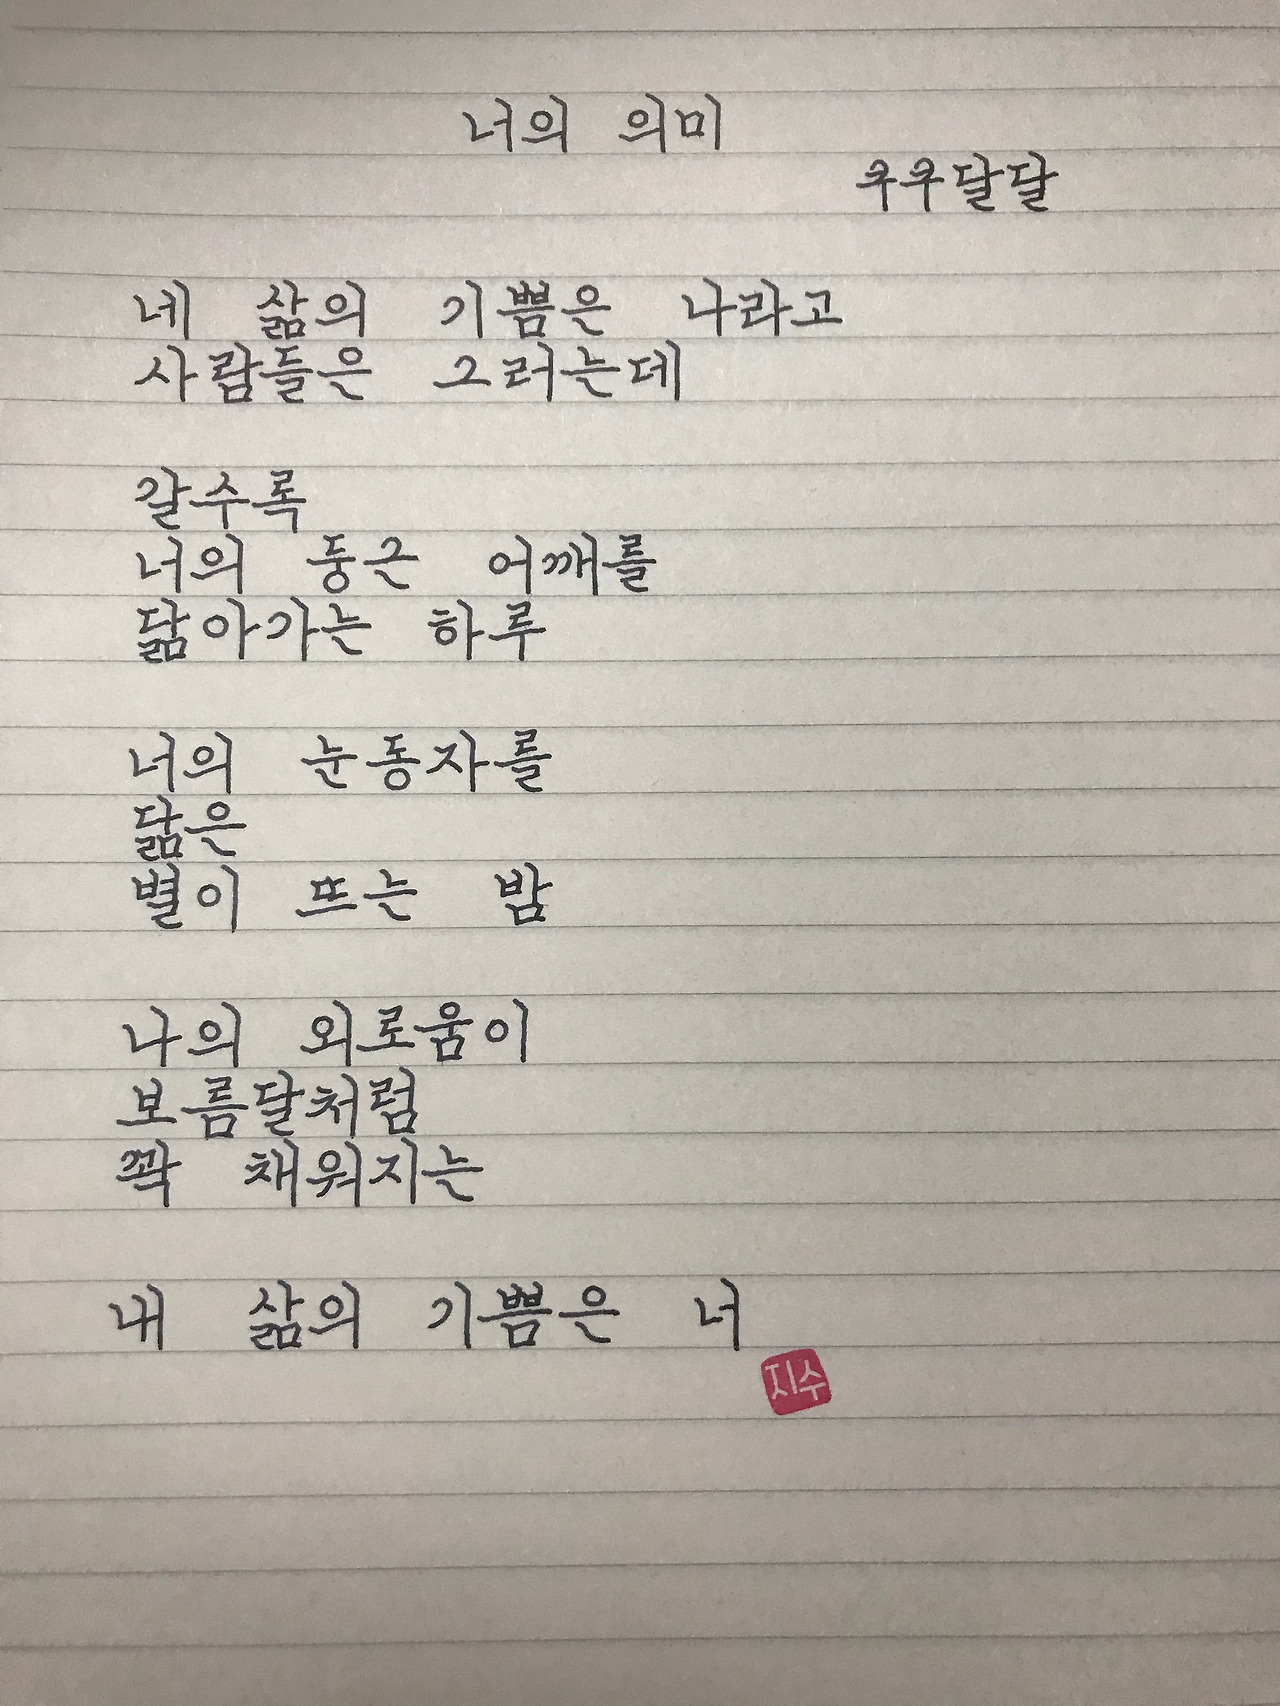 너의 의미
쿠쿠달달
네 삶의 기쁨은 나라고
사람들은 그러는데
갈수록
너의 둥근 어깨를
닮아가는 하루
너의 눈동자를
닮은
별이 뜨는 밤
나의 외로움이
보름달처럼
꽉 채워지는
내 삶의 기쁨은 너
지수